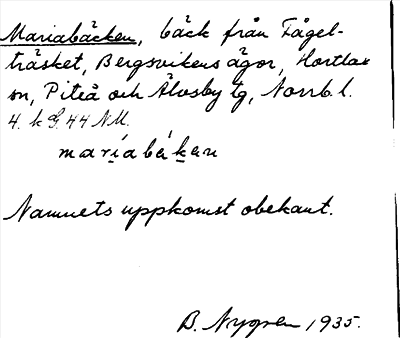 Mariabäcken, bäck från Fågel-
träsket, Bergsvikens ägor, Hortlax
sn, Piteå och Älvsby tg, Norrb. l.
4. k G. 44 NM.
mariabäken
Namnets uppkomst obekant.
B. Nygren 1935.